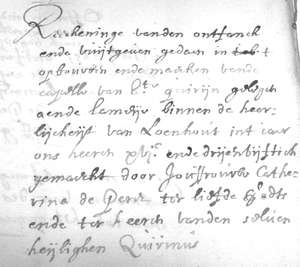 Reekeninge vanden ontfanck
ende vuijtgeven gedaen in tot t
opbouwen ende maecken vande
capelle van Ste quirijn gelegen
aende binnen de heer-
lijcheijt van Loenhout int iaer
ons heeren xvic. ende drijenvijftich
gemaeckt door Jouffrouwe Cathe-
rina de ter liefde godts
ende ter heeren vanden selven
heijlighen Quirinus